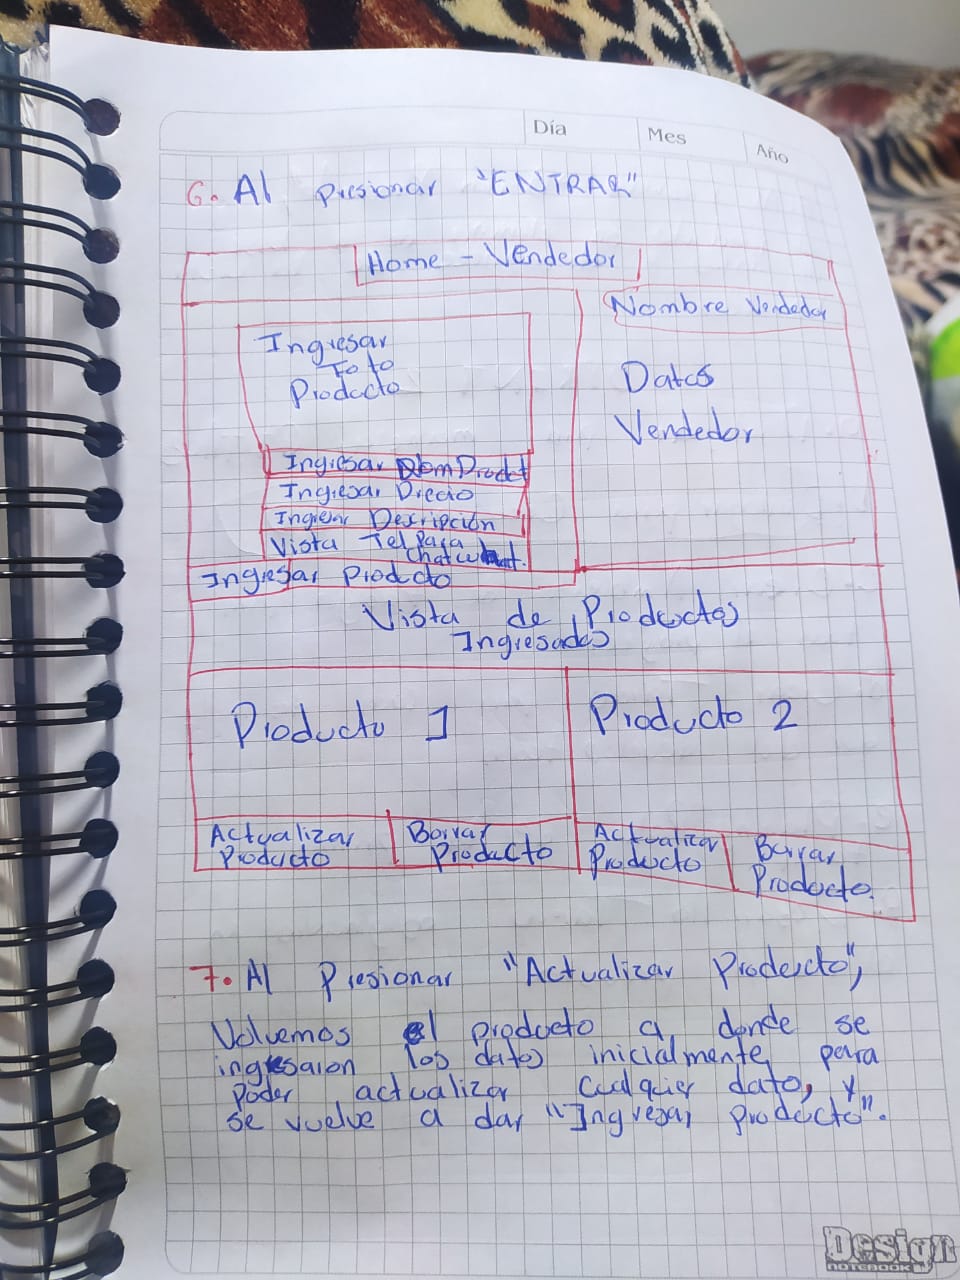 Día Mes Año
6. Al presionar "ENTRAR"
Home - Vendedor
Nombre Vendedor
Ingresar
Foto
Producto
Datos
Vendedor
Ingresar Nom Prodct
Ingresar Precio
Ingresar Descripción
Vista Tel Para
Chat
Ingresar Producto
Vista de Productos
Ingresados
Producto 1
Producto 2
Actualizar
Producto
Borrar
Producto
Actualizar
Producto
Borrar
Producto.
7. Al Presionar "Actualizar Producto",
Volvemos el producto a donde se
ingresaron los datos inicialmente para
poder actualizar cualquier dato, y
se vuelve a dar "Ingresar producto".
Design
NOTEBOOK